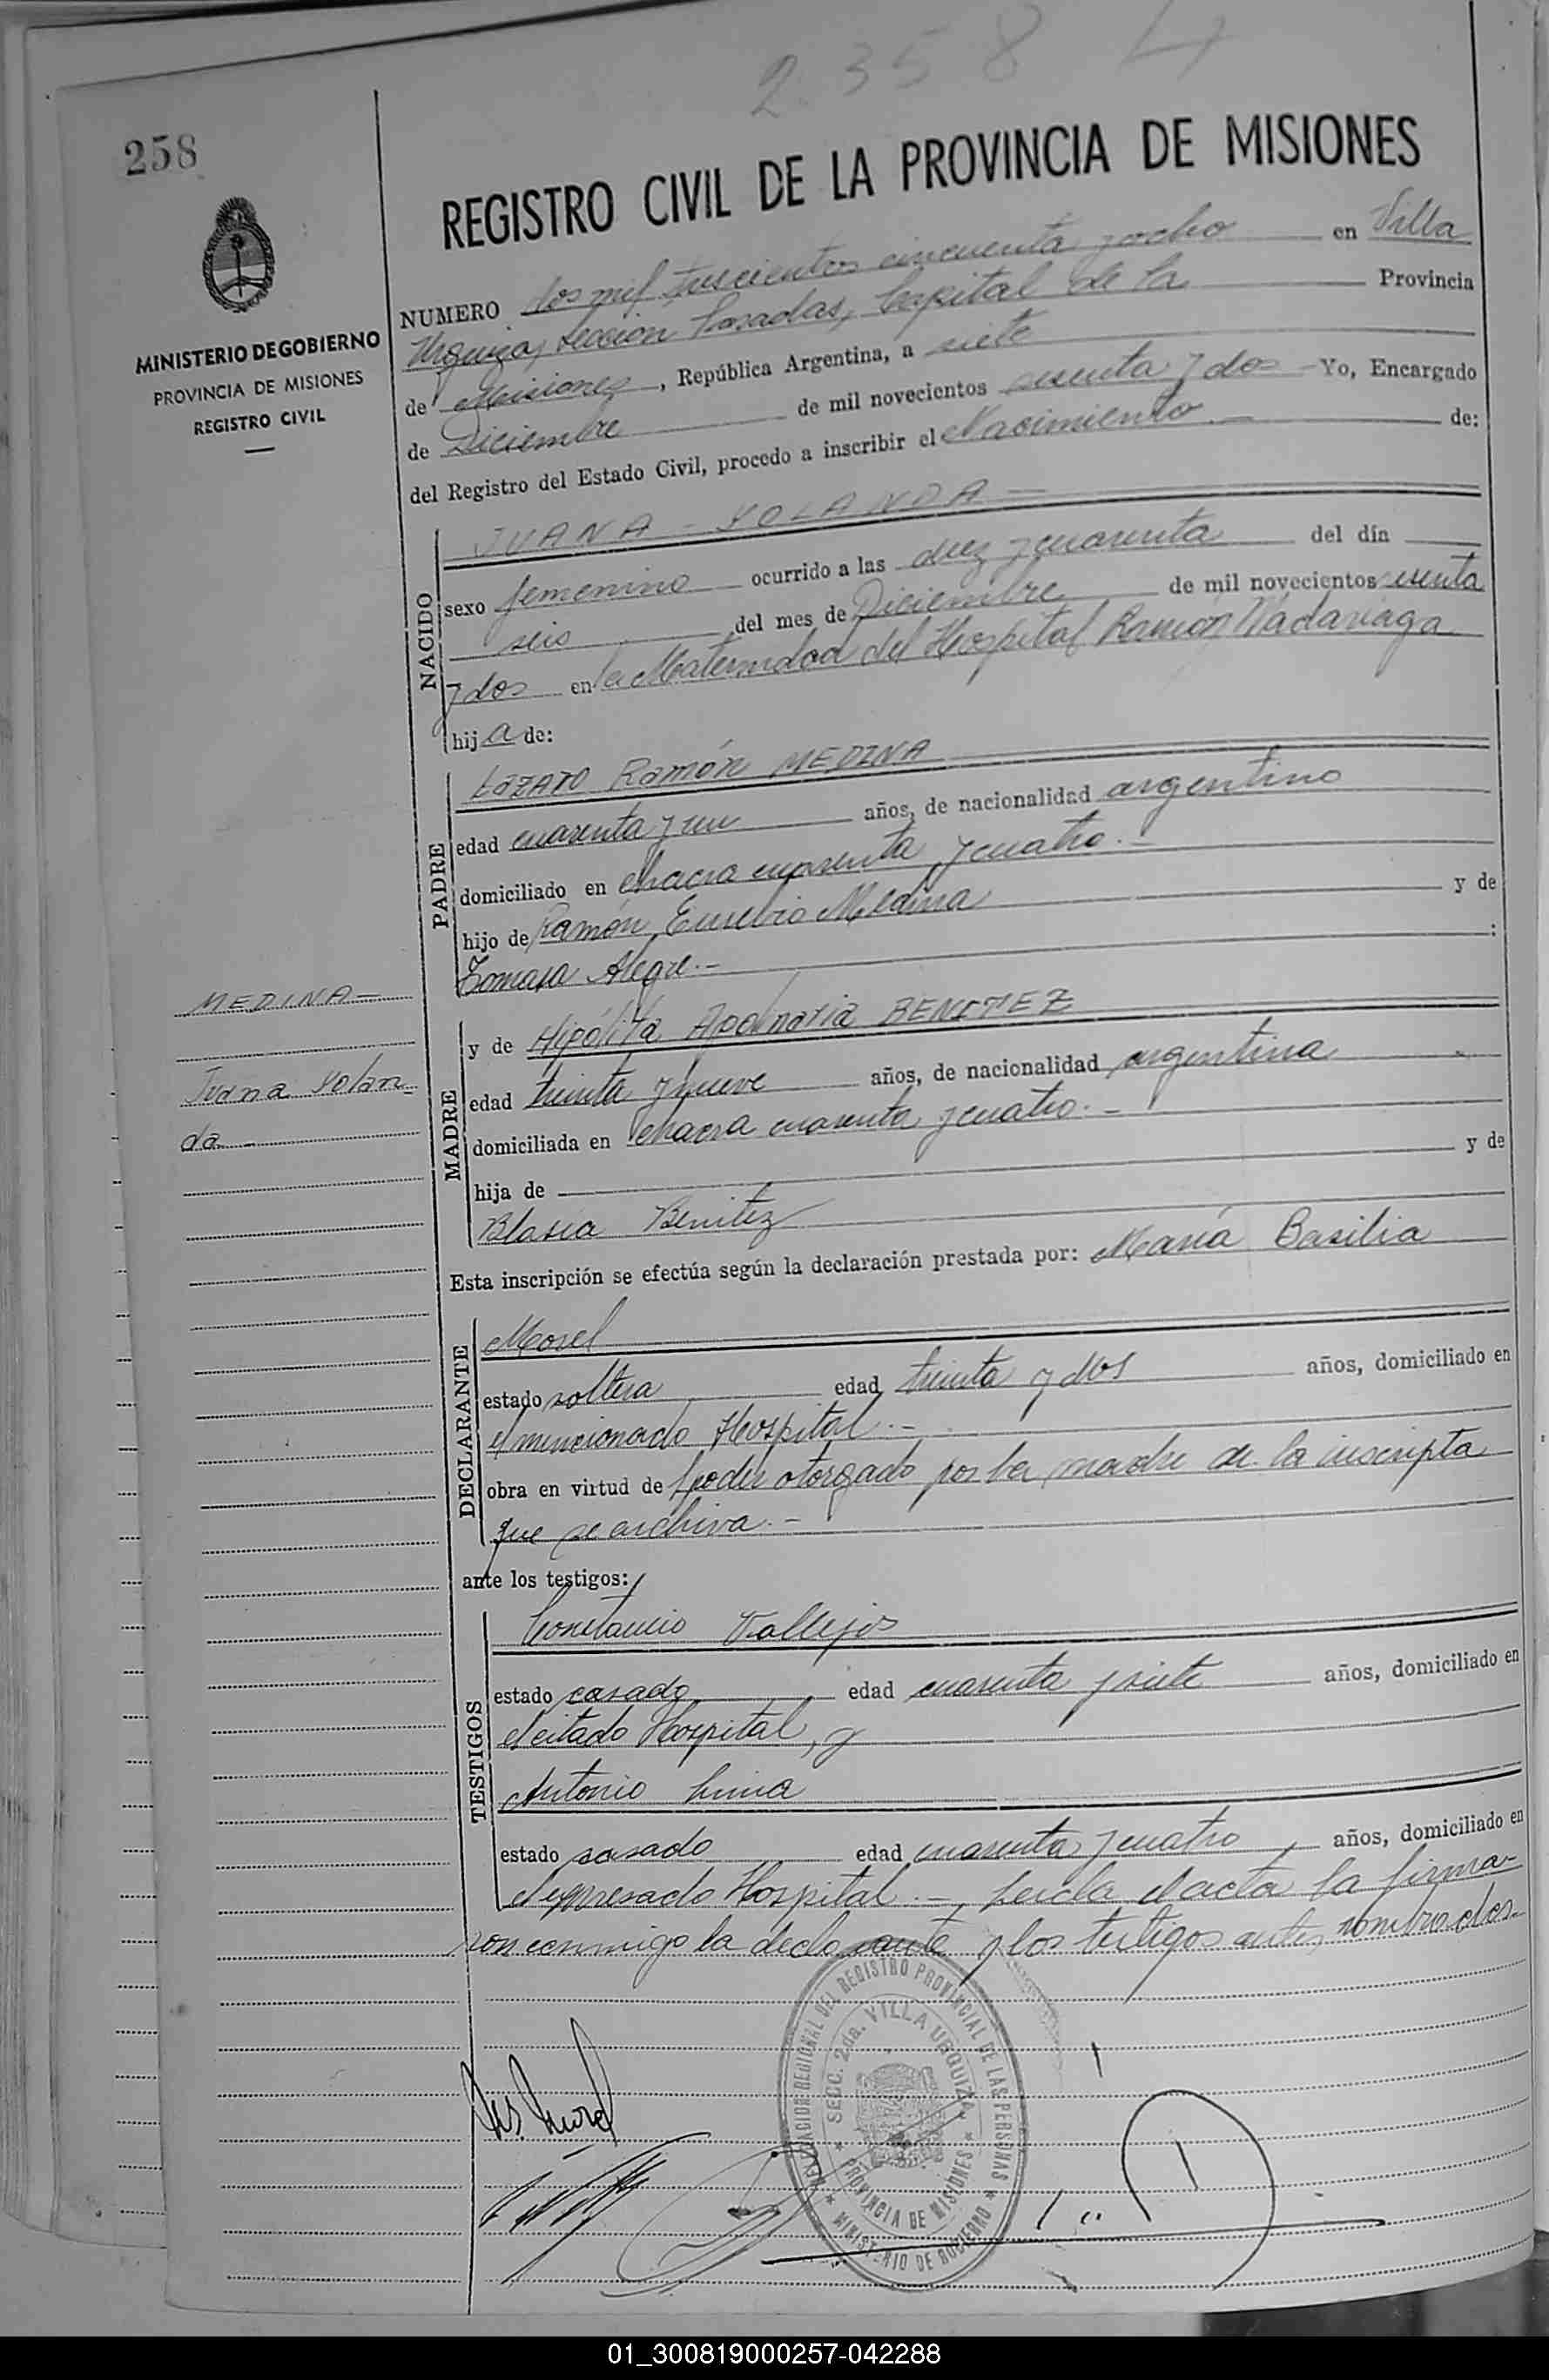 2358
258
REGISTRO CIVIL DE LA PROVINCIA DE MISIONES
MINISTERIO DE GOBIERNO
PROVINCIA DE MISIONES
REGISTRO CIVIL
NUMERO dos mil trescientos cincuenta y ocho en Villa
Urquiza, Sección Posadas, Capital de la Provincia
de Misiones, República Argentina, a siete
de Diciembre de mil novecientos sesenta y dos Yo, Encargado
del Registro del Estado Civil, procedo a inscribir el Nacimiento de:
NACIDO
JUANA YOLANDA
sexo femenino ocurrido a las diez y cuarenta del día
seis del mes de Diciembre de mil novecientos sesenta
y dos en la Maternidad del Hospital Ramón Madariaga
hija de:
PADRE
LAZARO Ramón MEDINA
edad cuarenta y un años, de nacionalidad argentino
domiciliado en chacra cuarenta y cuatro.-
hijo de Ramón Eusebio Medina y de
Tomasa Alegre.- :
MEDINA-
Juana Yolan-
da-
MADRE
y de Hipólita Apolinaria BENITEZ
edad treinta y nueve años, de nacionalidad argentina
domiciliada en chacra cuarenta y cuatro.-
hija de y de
Blasia Benitez
Esta inscripción se efectúa según la declaración prestada por: María Basilia
DECLARANTE
Morel
estado soltera edad treinta y dos años, domiciliado en
el mencionado Hospital.-
obra en virtud de poder otorgado por la madre de la inscripta
que se archiva.-
ante los testigos:
TESTIGOS
Constancio Vallejos
estado casado edad cuarenta y siete años, domiciliado en
el citado Hospital, y
Antonio Luna
estado casado edad cuarenta y cuatro años, domiciliado en
el expresado Hospital.- Leída el acta la firma-
ron conmigo la declarante y los testigos antes nombrados.-
DELEGACION REGIONAL DEL REGISTRO PROVINCIAL DE LAS PERSONAS
SECC. 2da. VILLA URQUIZA
PROVINCIA DE MISIONES
MINISTERIO DE GOBIERNO
01_300819000257-042288